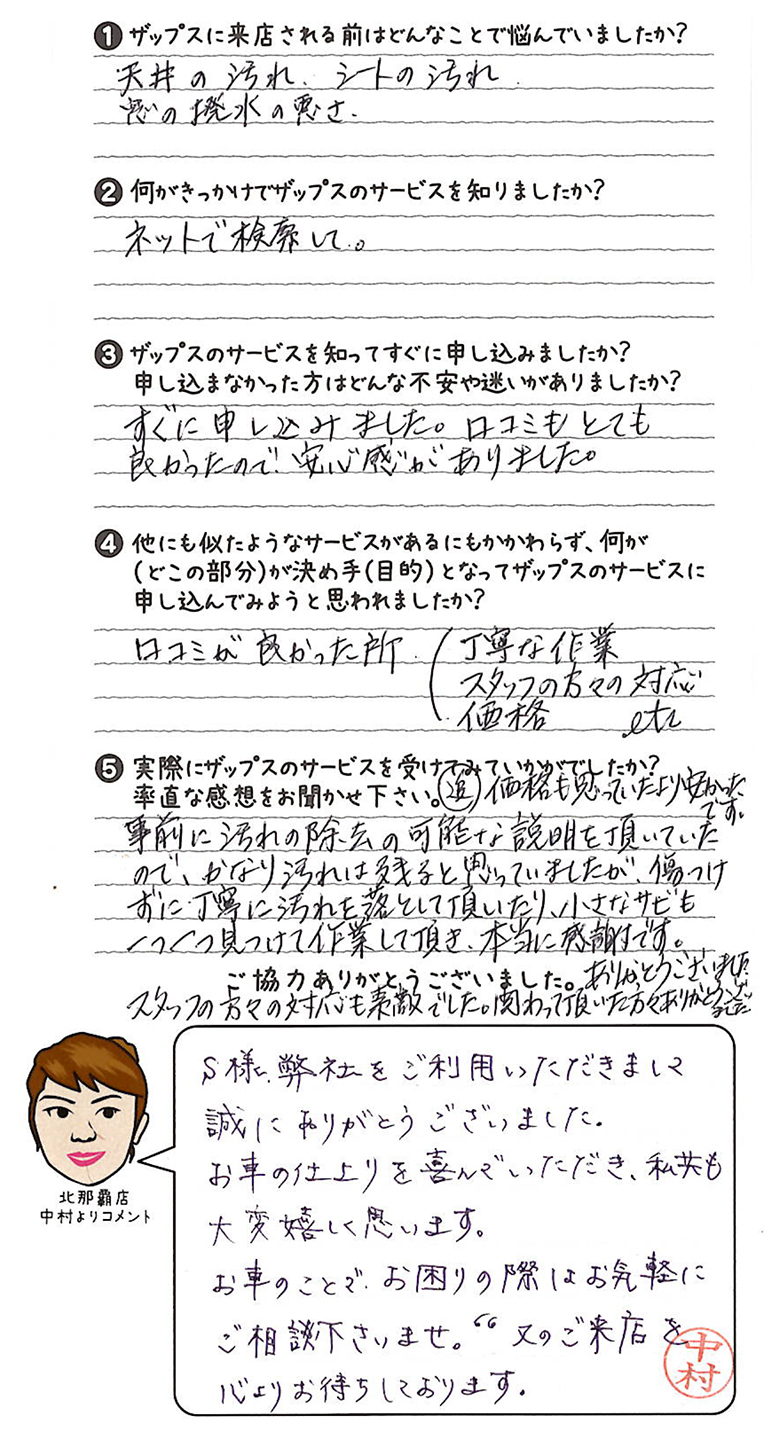 ❶ ザップスに来店される前はどんなことで悩んでいましたか?
天井の汚れ、シートの汚れ
窓の撥水の悪さ.
❷ 何がきっかけでザップスのサービスを知りましたか?
ネットで検索して。
❸ ザップスのサービスを知ってすぐに申し込みましたか?
申し込まなかった方はどんな不安や迷いがありましたか?
すぐに申し込みました。口コミもとても
良かったので安心感がありました。
❹ 他にも似たようなサービスがあるにもかかわらず、何が
(どこの部分)が決め手(目的)となってザップスのサービスに
申し込んでみようと思われましたか?
口コミが良かった所 (丁寧な作業
スタッフの方々の対応
価格 etc
❺ 実際にザップスのサービスを受けてみていかがでしたか?
率直な感想をお聞かせ下さい。 追 価格も思っていたより安かった
です。
事前に汚れの除去の可能な説明を頂いていた
ので、かなり汚れは残ると思っていましたが、傷つけ
ずに丁寧に汚れを落として頂いたり、小さなサビも
一つ一つ見つけて作業して頂き、本当に感謝です。
ご協力ありがとうございました。 ありがとうございました
スタッフの方々の対応も素敵でした。関わって頂いた方々ありがとうござい
ました
S様、弊社をご利用いただきまして
誠にありがとうございました.
お車の仕上りを喜んでいただき、私共も
大変嬉しく思います。
お車のことで、お困りの際はお気軽に
ご相談下さいませ。 又のご来店を
心よりお待ちしております.
中村
北那覇店
中村よりコメント